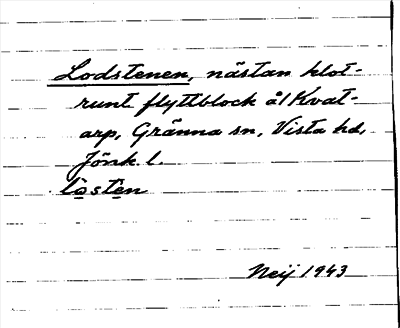 Lodstenen, nästan klot-
runt flyttblock å Kvat-
arp, Gränna sn, Vista hd,
Jönk. l.
losten
Neij 1943